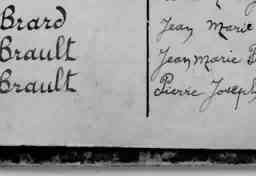 Brard Jean Marie
Brault Jean Marie
Brault Pierre Joseph